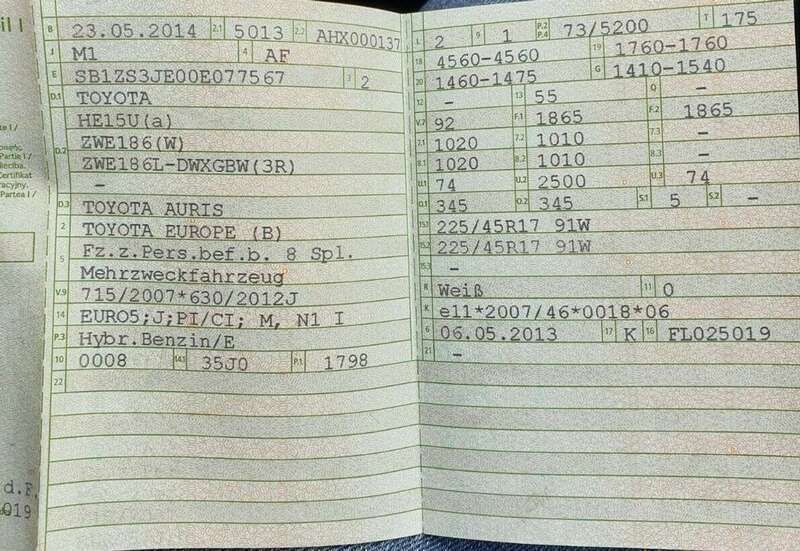 il I
te I /
Partie I /
ieciba.
Certifikat
racyjny.
Partea I /
d.F.
019
B 23.05.2014 2.1 5013 2.2 AHX000137
J M1 4 AF
E SB1ZS3JE00E077567 3 2
D.1 TOYOTA
D.2 HE15U(a)
ZWE186(W)
ZWE186L-DWXGBW(3R)
–
D.3 TOYOTA AURIS
2 TOYOTA EUROPE (B)
5 Fz.z.Pers.bef.b. 8 Spl.
Mehrzweckfahrzeug
V.9 715/2007*630/2012J
14 EURO5;J;PI/CI; M, N1 I
P.3 Hybr.Benzin/E
10 0008 14.1 35J0 P.1 1798
22
L 2 9 1 P.2 P.4 73/5200 T 175
18 4560-4560 19 1760-1760
20 1460-1475 G 1410-1540
12 – 13 55 Q –
V.7 92 F.1 1865 F.2 1865
7.1 1020 7.2 1010 7.3 –
8.1 1020 8.2 1010 8.3 –
U.1 74 U.2 2500 U.3 74
O.1 345 O.2 345 S.1 5 S.2 –
15.1 225/45R17 91W
15.2 225/45R17 91W
15.3 –
R Weiß 11 0
K e11*2007/46*0018*06
6 06.05.2013 17 K 16 FL025019
21 –